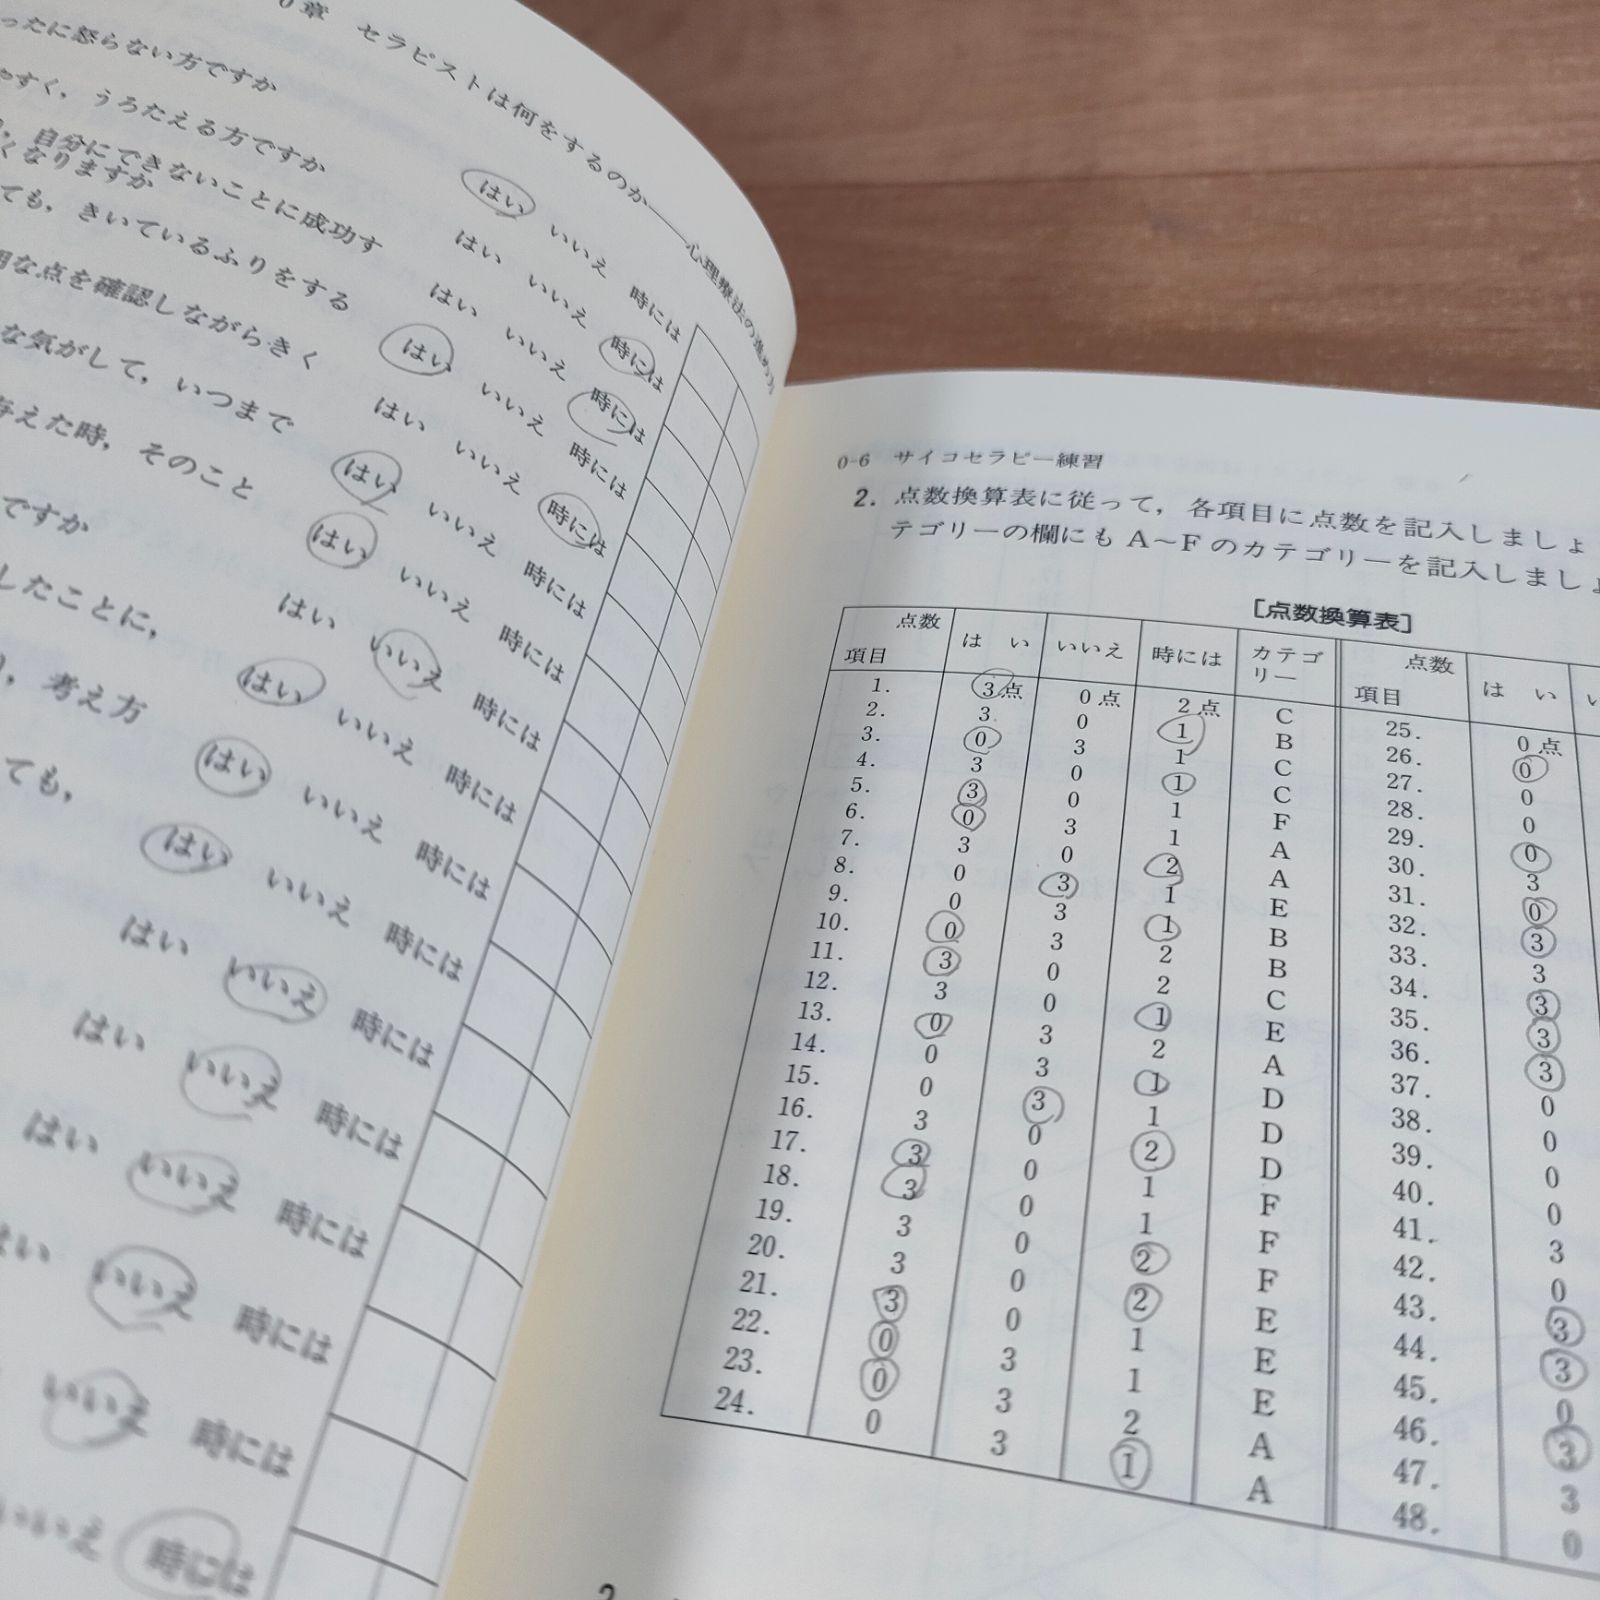 0章 セラピストは何をするのか――心理療法の進め方
ったに怒らない方ですか はい いいえ 時には
やすく，うろたえる方ですか はい いいえ 時には
自分にできないことに成功す
くなりますか はい いいえ 時には
ても，きいているふりをする はい いいえ 時には
な点を確認しながらきく はい いいえ 時には
な気がして，いつまで はい いいえ 時には
与えた時，そのこと はい いいえ 時には
ですか はい いいえ 時には
したことに， はい いいえ 時には
，考え方 はい いいえ 時には
ても， はい いいえ 時には
はい いいえ 時には
はい いいえ 時には
はい いいえ 時には
はい いいえ 時には
いいえ 時には
いいえ 時には
0-6 サイコセラピー練習
2. 点数換算表に従って，各項目に点数を記入しましょ
テゴリーの欄にも A～F のカテゴリーを記入しましょ
［点数換算表］
項目 点数 はい いいえ 時には カテゴリー 項目 点数 はい い
1. 3点 0点 2点 C 25. 0点
2. 3 0 1 B 26. 0
3. 0 3 1 C 27. 0
4. 3 0 1 C 28. 0
5. 3 0 1 F 29. 0
6. 0 3 1 A 30. 3
7. 3 0 2 A 31. 0
8. 0 3 1 E 32. 3
9. 0 3 1 B 33. 3
10. 0 3 2 B 34. 3
11. 3 0 2 C 35. 3
12. 3 0 1 E 36. 3
13. 0 3 2 A 37. 0
14. 0 3 1 D 38. 0
15. 0 3 1 D 39. 0
16. 3 0 2 D 40. 0
17. 3 0 1 F 41. 3
18. 3 0 1 F 42. 0
19. 3 0 2 F 43. 3
20. 3 0 2 E 44. 3
21. 3 0 1 E 45. 0
22. 0 3 1 E 46. 3
23. 0 3 2 A 47. 3
24. 0 3 1 A 48. 0